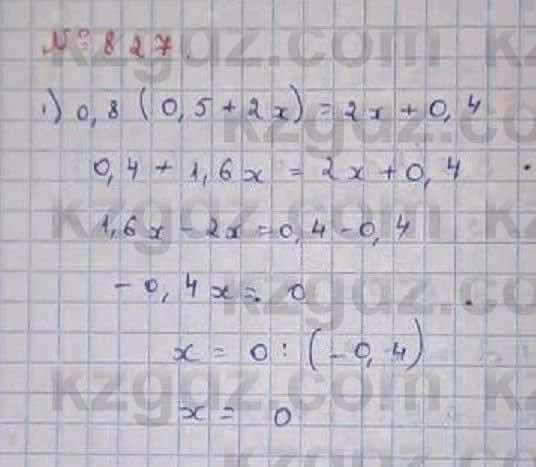 № 827.
1) 0,8 (0,5 + 2x) = 2x + 0,4
0,4 + 1,6x = 2x + 0,4
1,6x - 2x = 0,4 - 0,4
- 0,4x = 0
x = 0 : (- 0,4)
x = 0
kzgdz.com